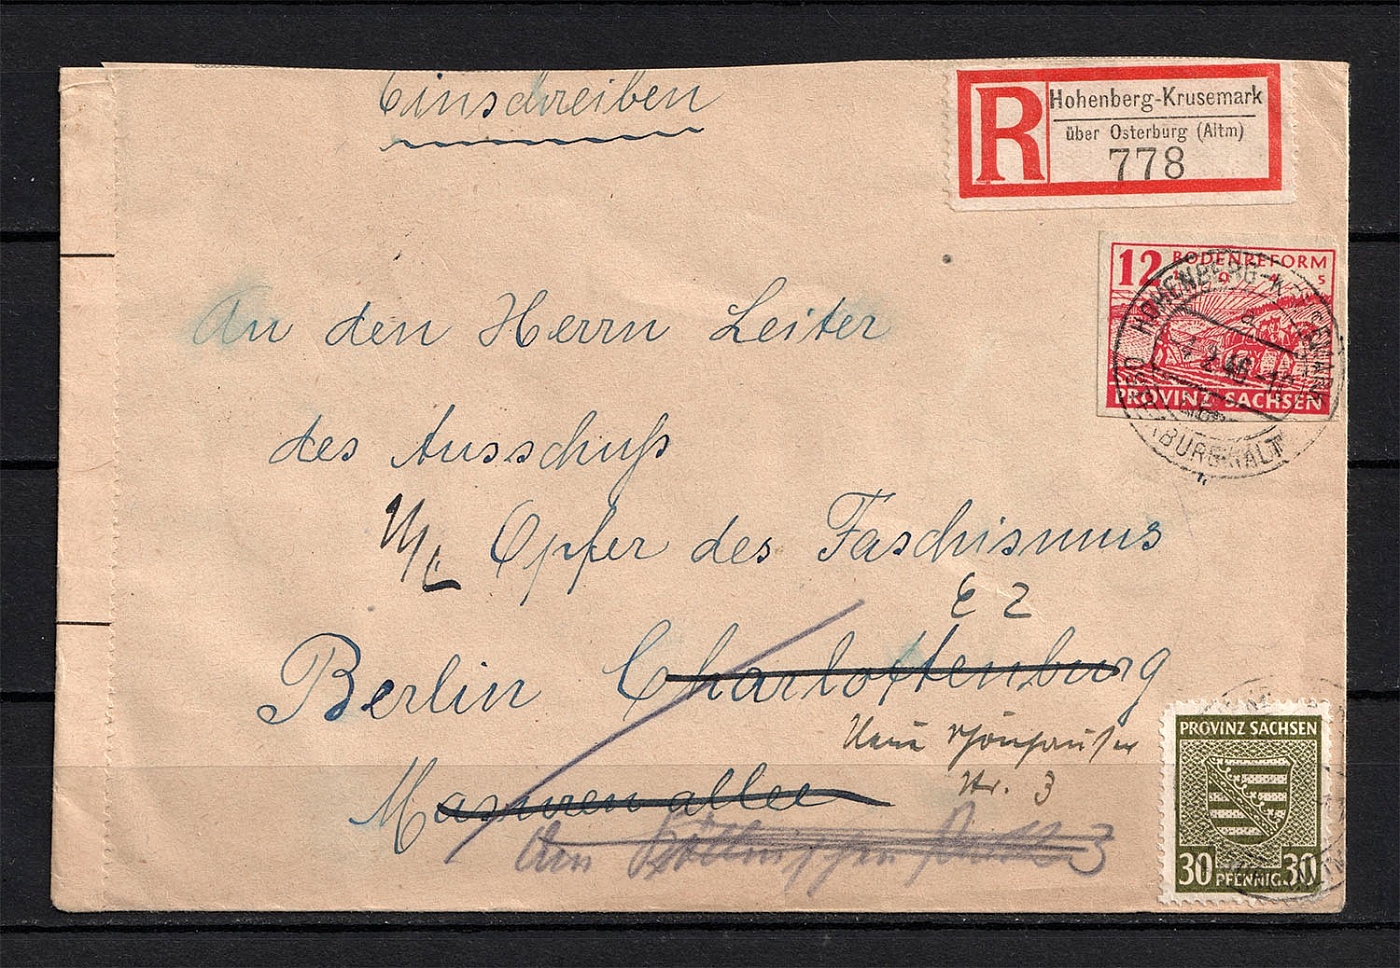 Einschreiben
R
Hohenberg-Krusemark
über Osterburg (Altm)
778
12 BODENREFORM
PROVINZ SACHSEN
HOHENBERG-KRUSEMARK
An den Herrn Leiter
des Ausschuß
Opfer des Faschismus
C 2
Berlin Charlottenburg
Neue Schönhauser
Str. 3
Masurenallee
Am
3
PROVINZ SACHSEN
30 PFENNIG 30